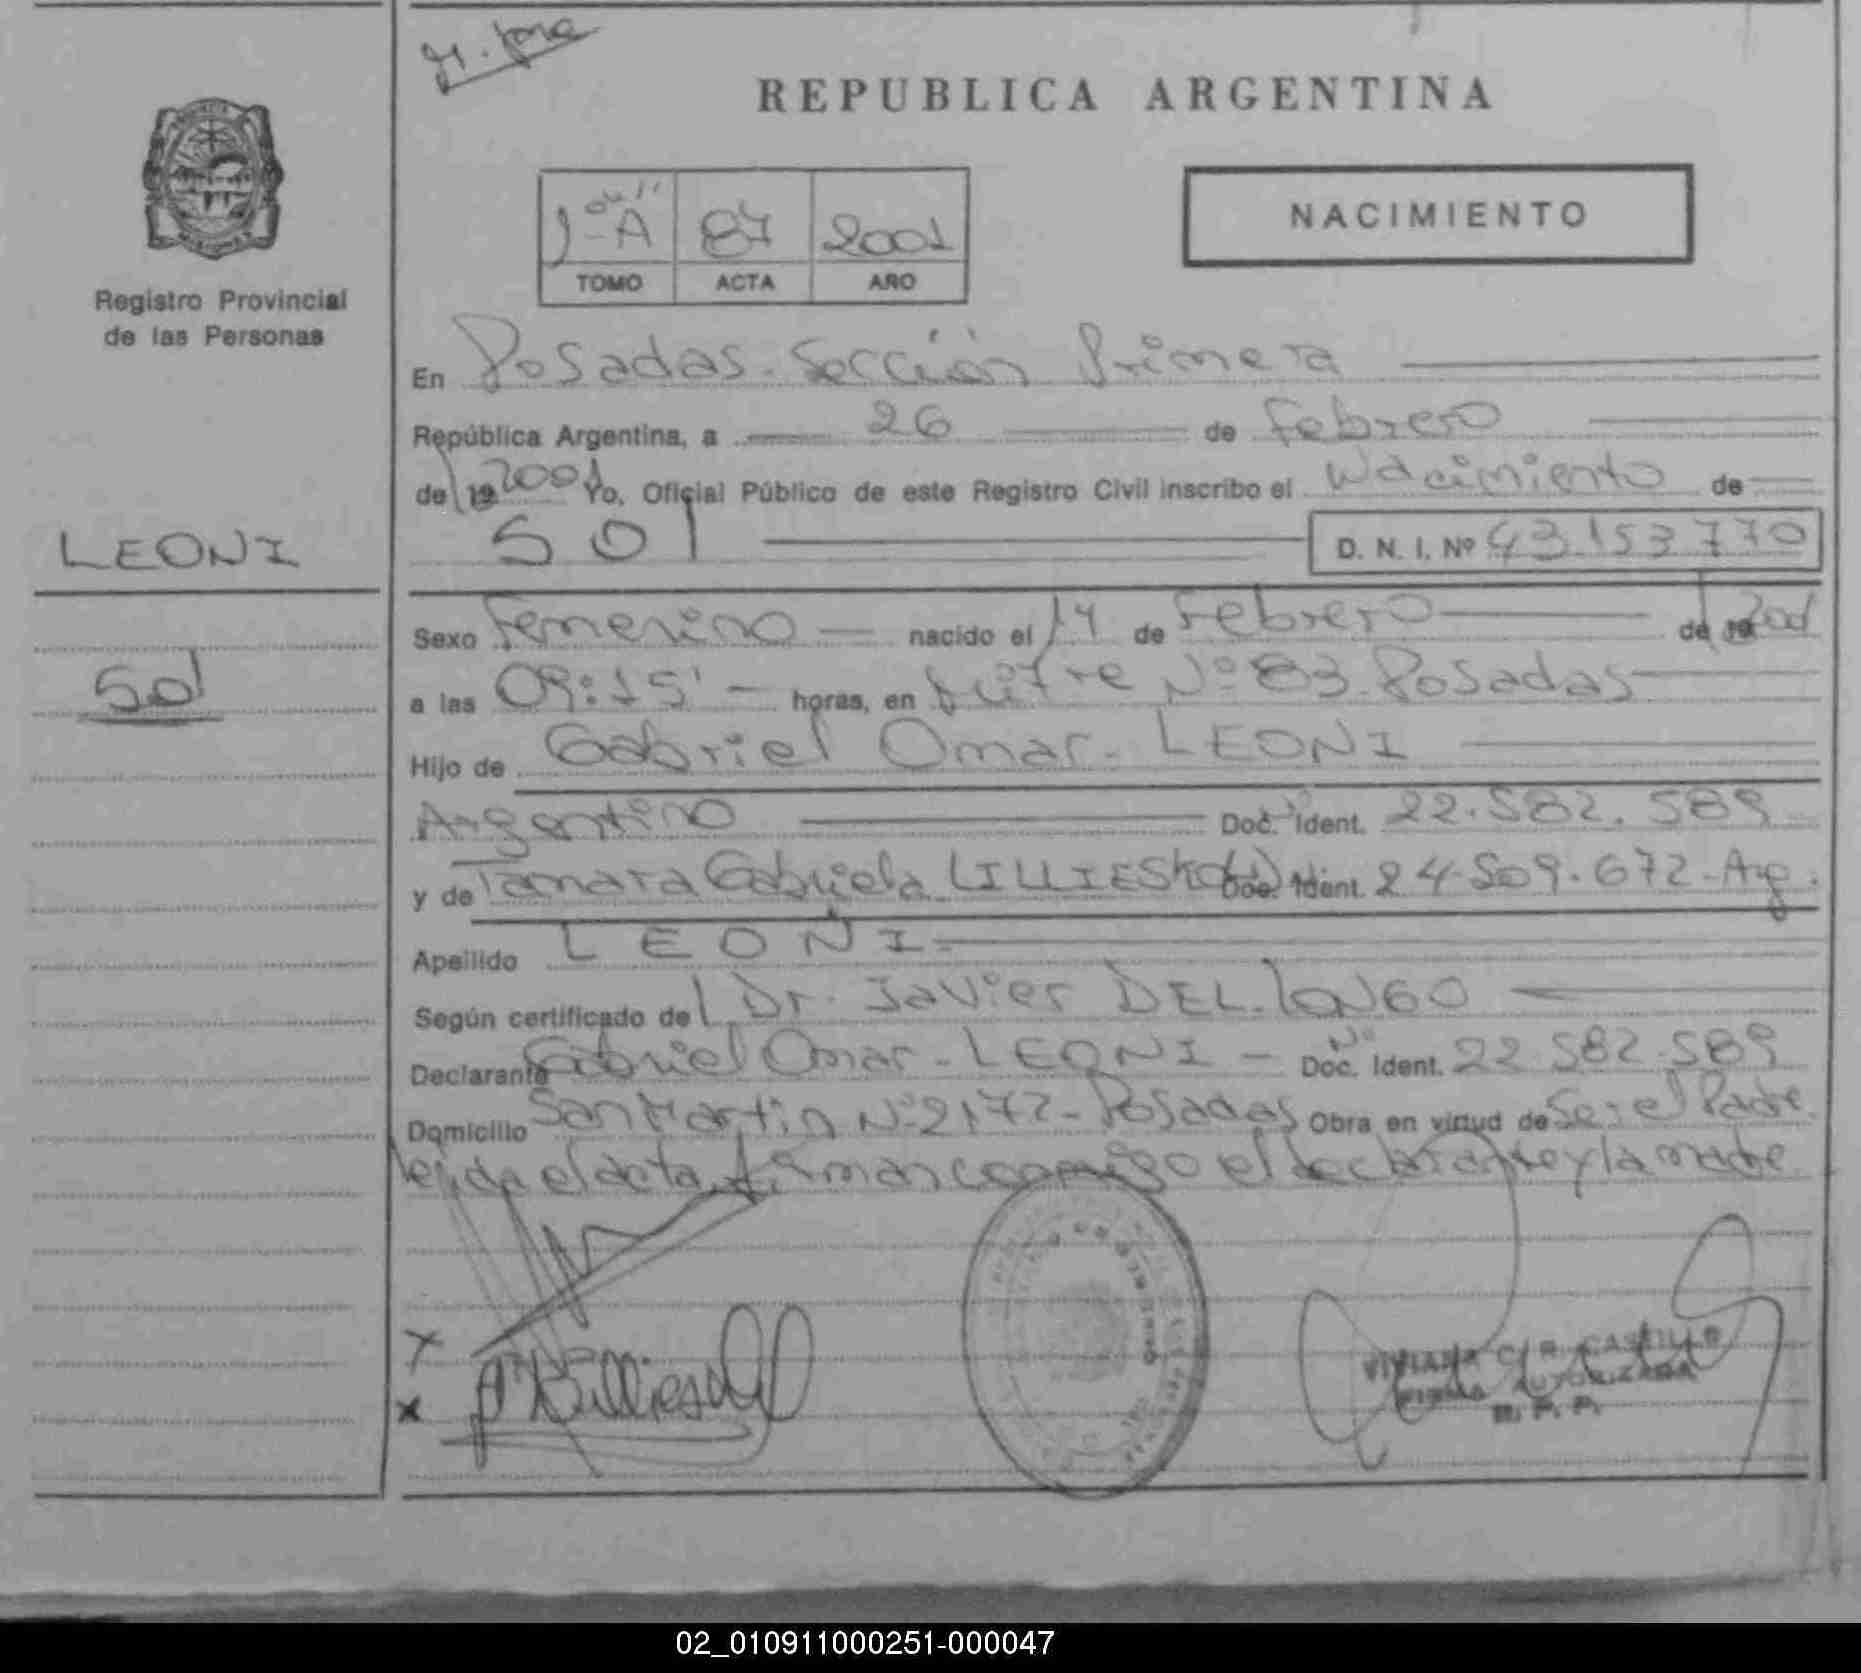 REPUBLICA ARGENTINA
1º "A" 87 2001
TOMO ACTA AÑO
NACIMIENTO
Registro Provincial
de las Personas
En Posadas-Sección Primera
República Argentina, a 26 de Febrero
de 19 2001 Yo, Oficial Público de este Registro Civil inscribo el Nacimiento de
LEONI
Sol
Sol
D. N. I. Nº 43.153.770
Sexo Femenino nacido el 14 de Febrero de 19 2001
a las 09:15' horas, en Mitre Nº 83-Posadas
Hijo de Gabriel Omar- LEONI
Argentino Doc. Ident. 22.582.589
y de Tamara Gabriela Doc. Ident. 24.509.672-Arg.
Apellido LEONI-
Según certificado del Dr. Javier DEL LONGO
Declarante Gabriel Omar- LEONI - Doc. Nº Ident. 22.582.589
Domicilio San Martin Nº 2172- Posadas Obra en virtud de Ser el Padre.
leida el acta, firman conmigo el declarante y la madre.
VIVIANA C. R. CASTILLO
FIRMA AUTORIZADA
R. P. P.
02_010911000251-000047